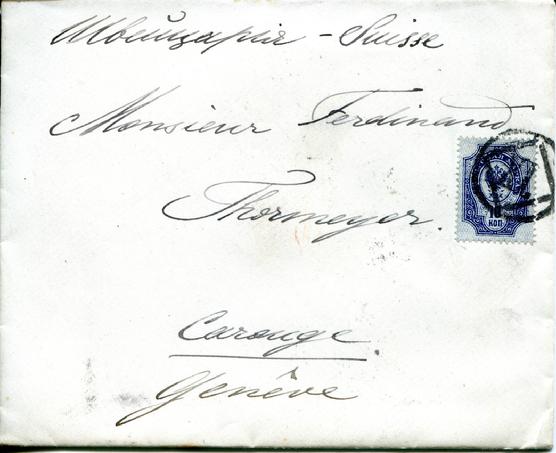 Швейцарія - Suisse
Monsieur Ferdinand
Thormeyer.
10
КОП
Carouge.
Genève